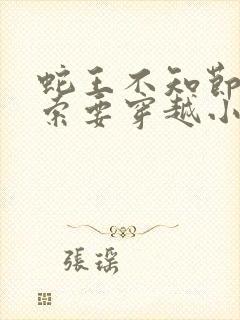 蛇王不知節
索要穿越小
張瑤